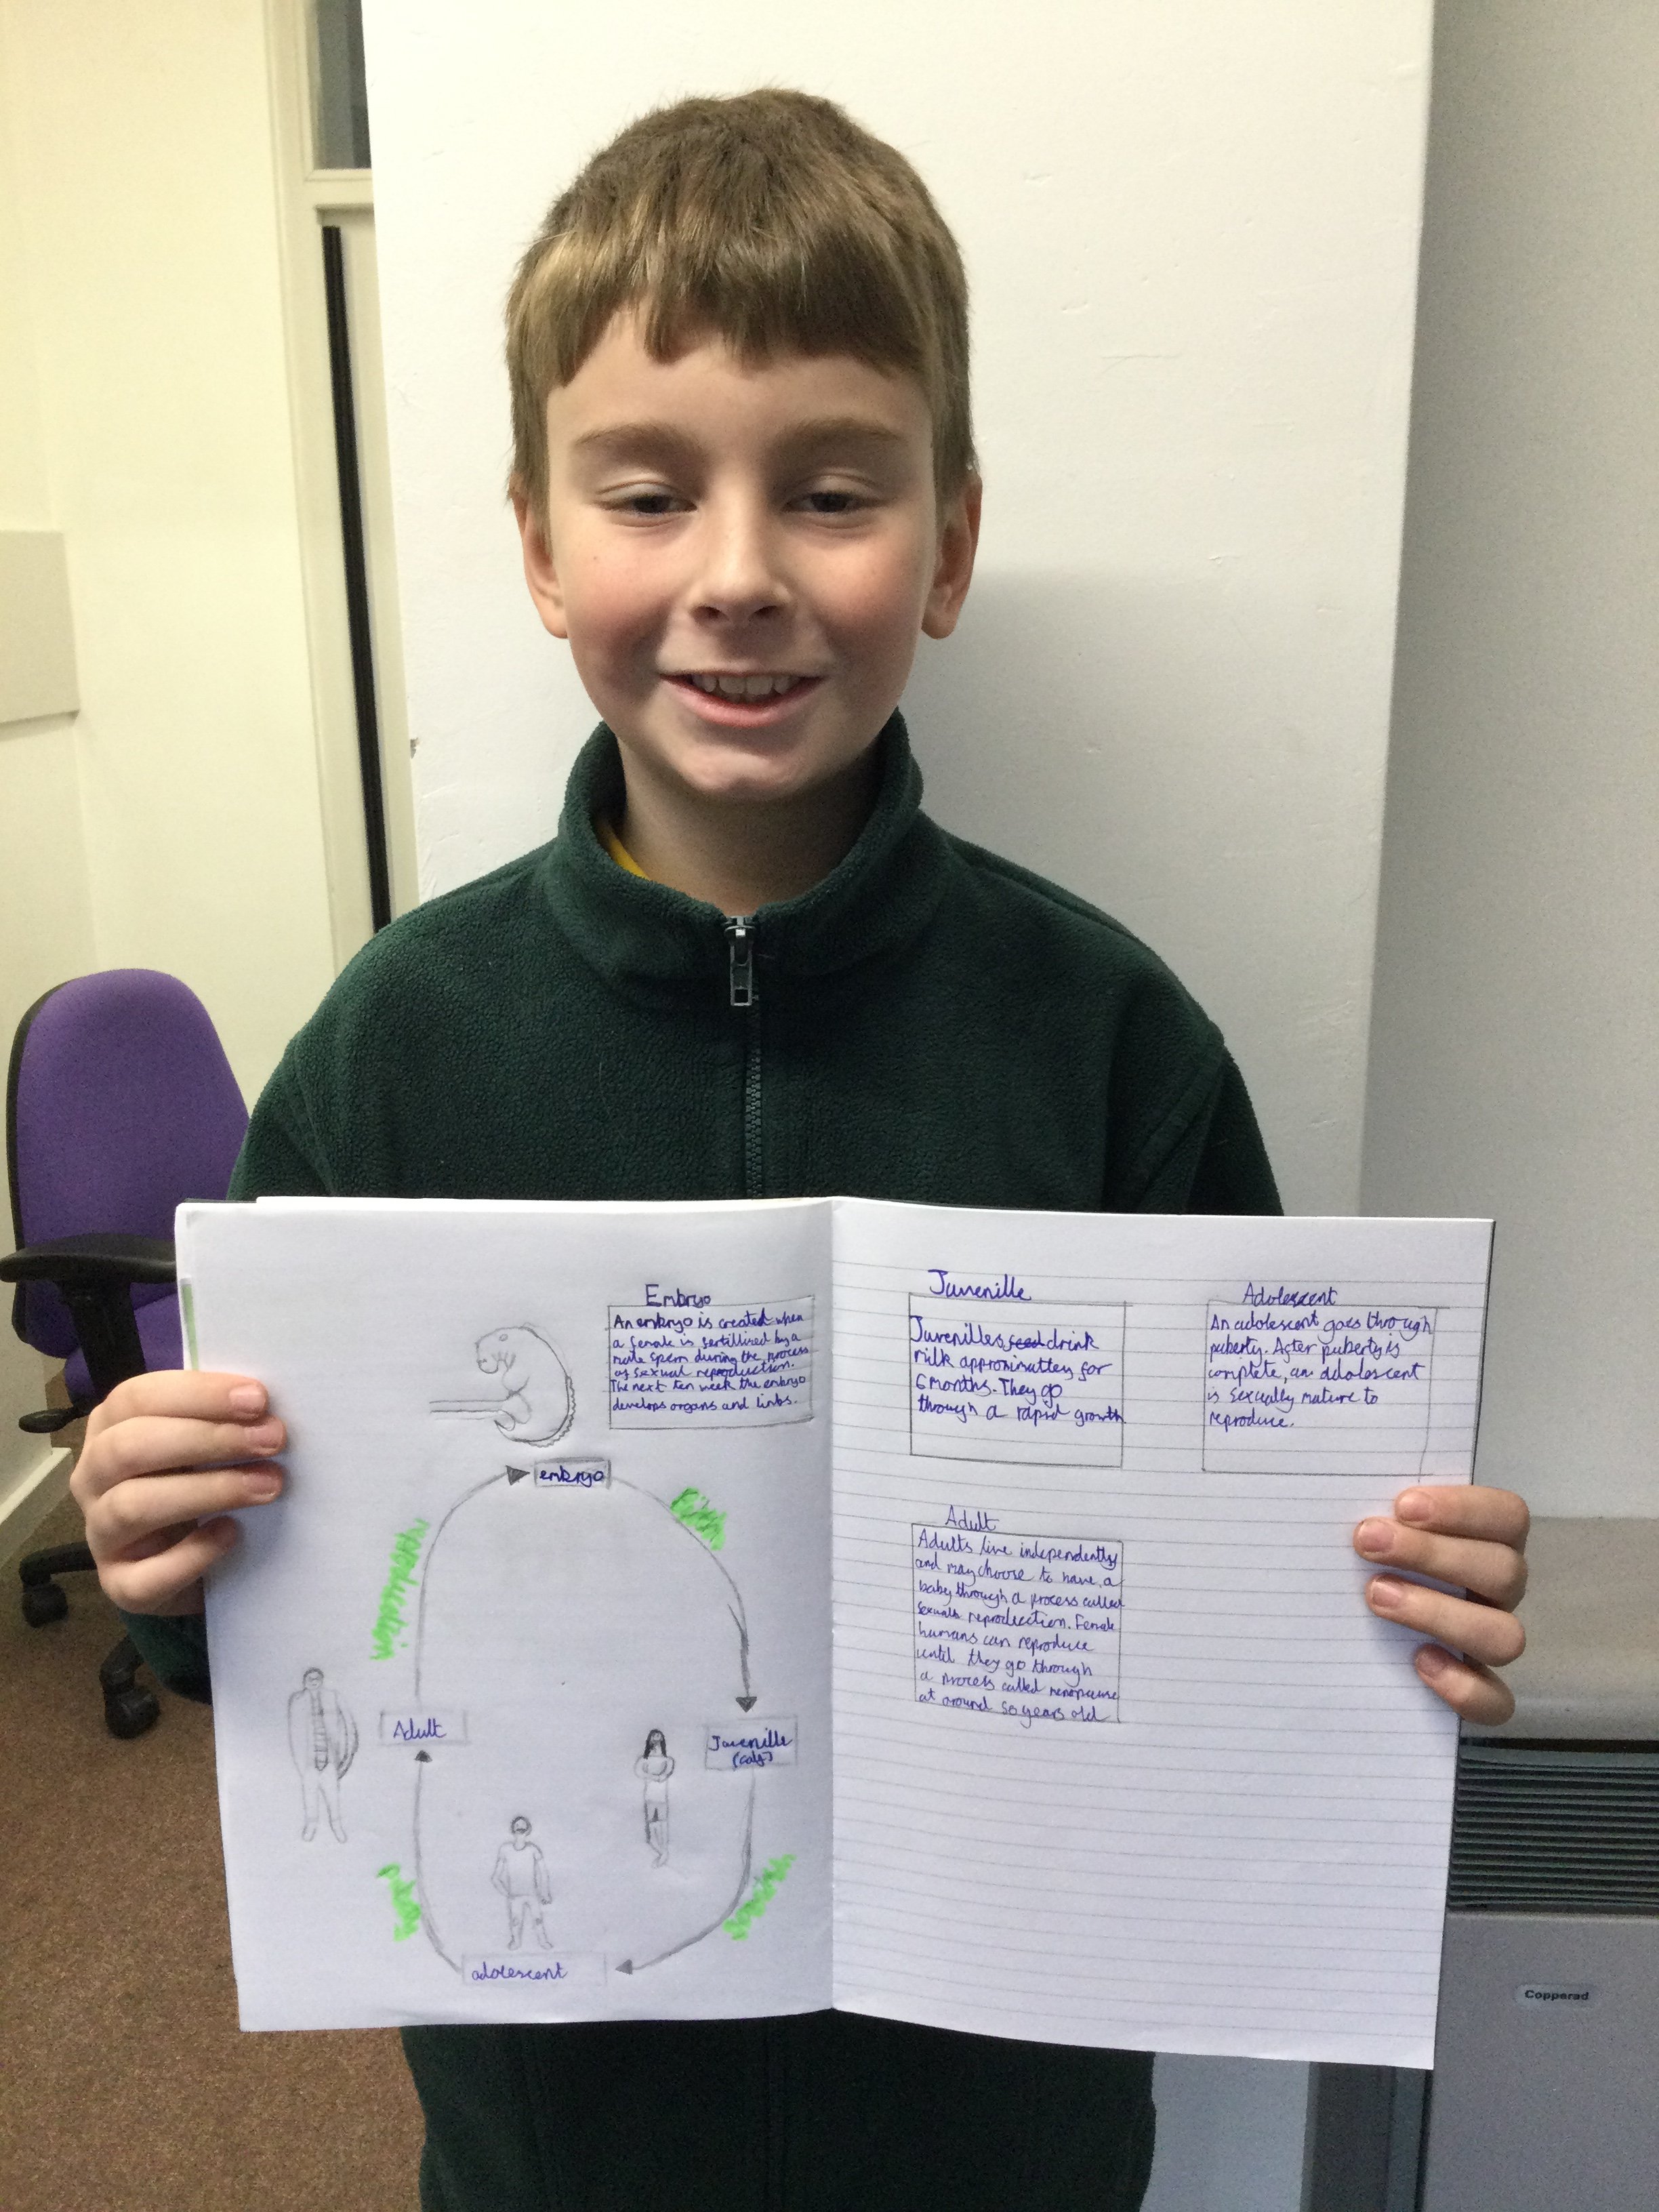 Embryo
An embryo is created when
a female is fertillized by a
male sperm during the process
of sexual reproduction.
The next ten week the embryo
develops organs and limbs.
embryo
reproduction
Adult
Juvenille
(calf)
puberty
adolescent
Juvenille
Juvenilles drink
milk approximattey for
6 months. They go
through a rapid growth
Adolescent
An adolescent goes through
puberty. After puberty is
complete, an adolescent
is sexually mature to
reproduce.
Adult
Adults live independently
and may choose to have a
baby through a process called
sexuals reproduction. Female
humans can reproduce
until they go through
a process called menopause
at around 50 years old
Copperad